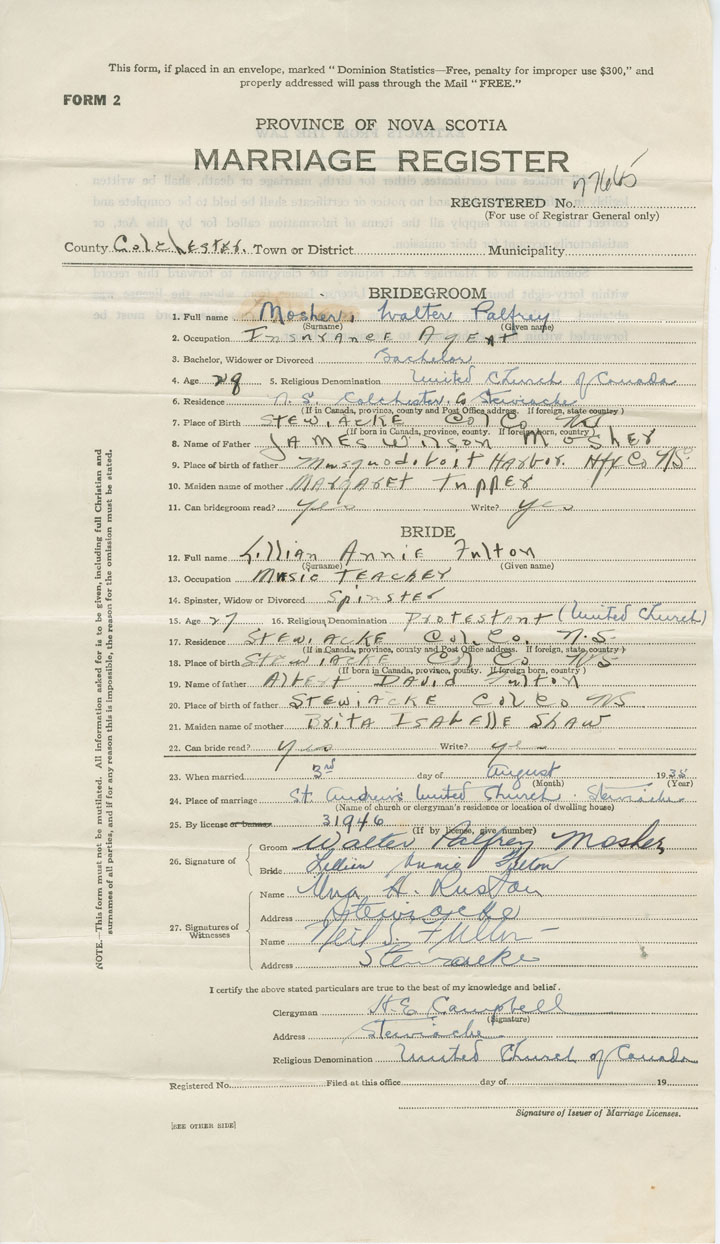 This form, if placed in an envelope, marked "Dominion Statistics—Free, penalty for improper use $300," and
properly addressed will pass through the Mail "FREE."
FORM 2
PROVINCE OF NOVA SCOTIA
MARRIAGE REGISTER
REGISTERED No.
(For use of Registrar General only)
County Colchester. Town or District Municipality
BRIDEGROOM
1. Full name Mosher, Walter Palfrey
(Surname) (Given name)
2. Occupation Insurance Agent
3. Bachelor, Widower or Divorced Bachelor
4. Age 29 5. Religious Denomination United Church of Canada
6. Residence N. S. Colchester Co Stewiacke
(If in Canada, province, county and Post Office address. If foreign, state country)
7. Place of Birth STEWIACKE Col Co NS
(If born in Canada, province, county. If foreign born, country)
8. Name of Father JAMES WILSON MOSHER
9. Place of birth of father Musquodoboit Harbor. Hfx Co N.S.
10. Maiden name of mother MARGARET Tupper
11. Can bridegroom read? yes Write? yes
BRIDE
12. Full name Lillian Annie Fulton
(Surname) (Given name)
13. Occupation Music TEACHER
14. Spinster, Widow or Divorced Spinster
15. Age 27 16. Religious Denomination Protestant (United Church)
17. Residence STEWIACKE Col. Co. N.S.
(If in Canada, province, county and Post Office address. If foreign, state country)
18. Place of birth STEWIACKE Col Co NS
(If born in Canada, province, county. If foreign born, country)
19. Name of father Albert David Fulton
20. Place of birth of father STEWIACKE Col Co NS
21. Maiden name of mother Brita Isabelle Shaw
22. Can bride read? Yes Write? yes
23. When married 3rd day of August 1935
(Month) (Year)
24. Place of marriage St. Andrew's United Church. Stewiacke
(Name of church or clergyman's residence or location of dwelling house)
25. By license or banns 31946
(If by license, give number)
26. Signature of Groom Walter Palfrey Mosher
Bride Lillian Annie Fulton
27. Signatures of Witnesses
Name H. Ruston
Address Stewiacke
Name Neil S. Fulton
Address Stewiacke
I certify the above stated particulars are true to the best of my knowledge and belief.
Clergyman H E Campbell
(Signature)
Address Stewiacke
Religious Denomination United Church of Canada
Registered No. Filed at this office day of 19
Signature of Issuer of Marriage Licenses.
[SEE OTHER SIDE]
NOTE.—This form must not be mutilated. All information asked for is to be given, including full Christian and
surnames of all parties, and if for any reason this is impossible, the reason for the omission must be stated.